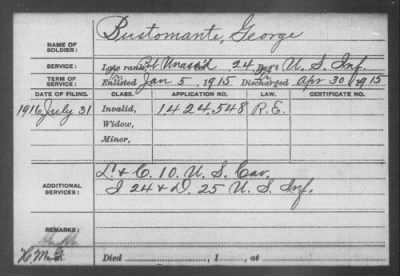 NAME OF SOLDIER: Bustomante, George
SERVICE: Late rank, Pvt Unass'd 24 Reg't U. S. Inf.
TERM OF SERVICE: Enlisted Jan 5, 1915. Discharged Apr 30 1915
DATE OF FILING. CLASS. APPLICATION NO. LAW. CERTIFICATE NO.
1916 July 31 Invalid, 1,424,548 R.E.
Widow,
Minor,
ADDITIONAL SERVICES: L & C. 10. U. S. Cav.
I 24 & D. 25 U. S. Inf.
REMARKS:
Died , 1 , at